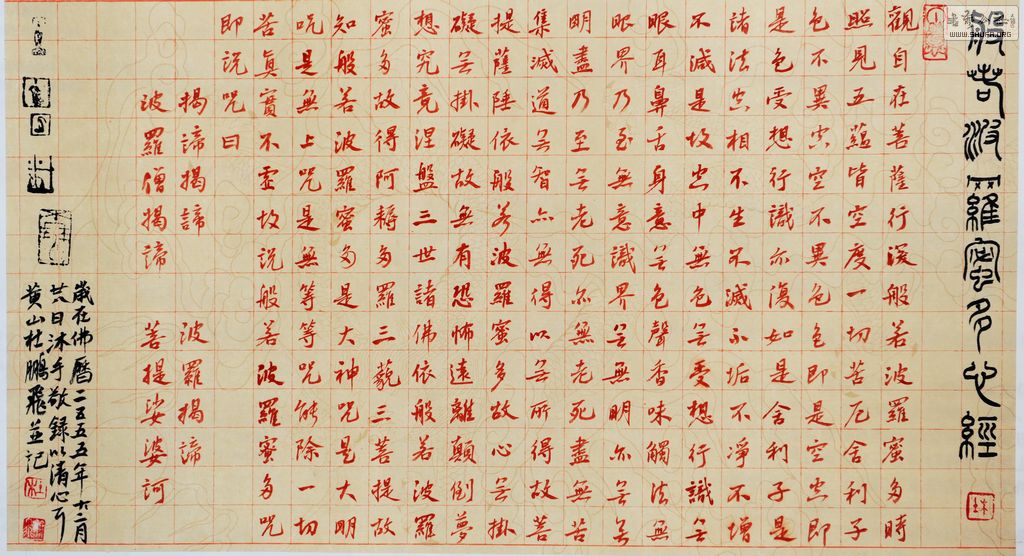 般若波羅蜜多心經
觀自在菩薩行深般若波羅蜜多時
照見五蘊皆空度一切苦厄舍利子
色不異空空不異色色即是空空即
是色受想行識亦復如是舍利子是
諸法空相不生不滅不垢不淨不增
不減是故空中無色无受想行識无
眼耳鼻舌身意无色聲香味觸法無
眼界乃至無意識界无無明亦无无
明盡乃至无老死亦無老死盡無苦
集滅道无智亦無得以无所得故菩
提薩埵依般若波羅蜜多故心无掛
礙无掛礙故無有恐怖遠離顛倒夢
想究竟涅盤三世諸佛依般若波羅
蜜多故得阿耨多羅三藐三菩提故
知般若波羅蜜多是大神呪是大明
呪是無上呪是無等等呪能除一切
苦真實不虛故說般若波羅蜜多呪
即說呪曰
揭諦揭諦 波羅揭諦
波羅僧揭諦 菩提娑婆訶
歲在佛曆二五五五年十二月
廿六日沐手敬錄以清心耳
黃山杜鵬飛並記
WWW.SHUFA.ORG